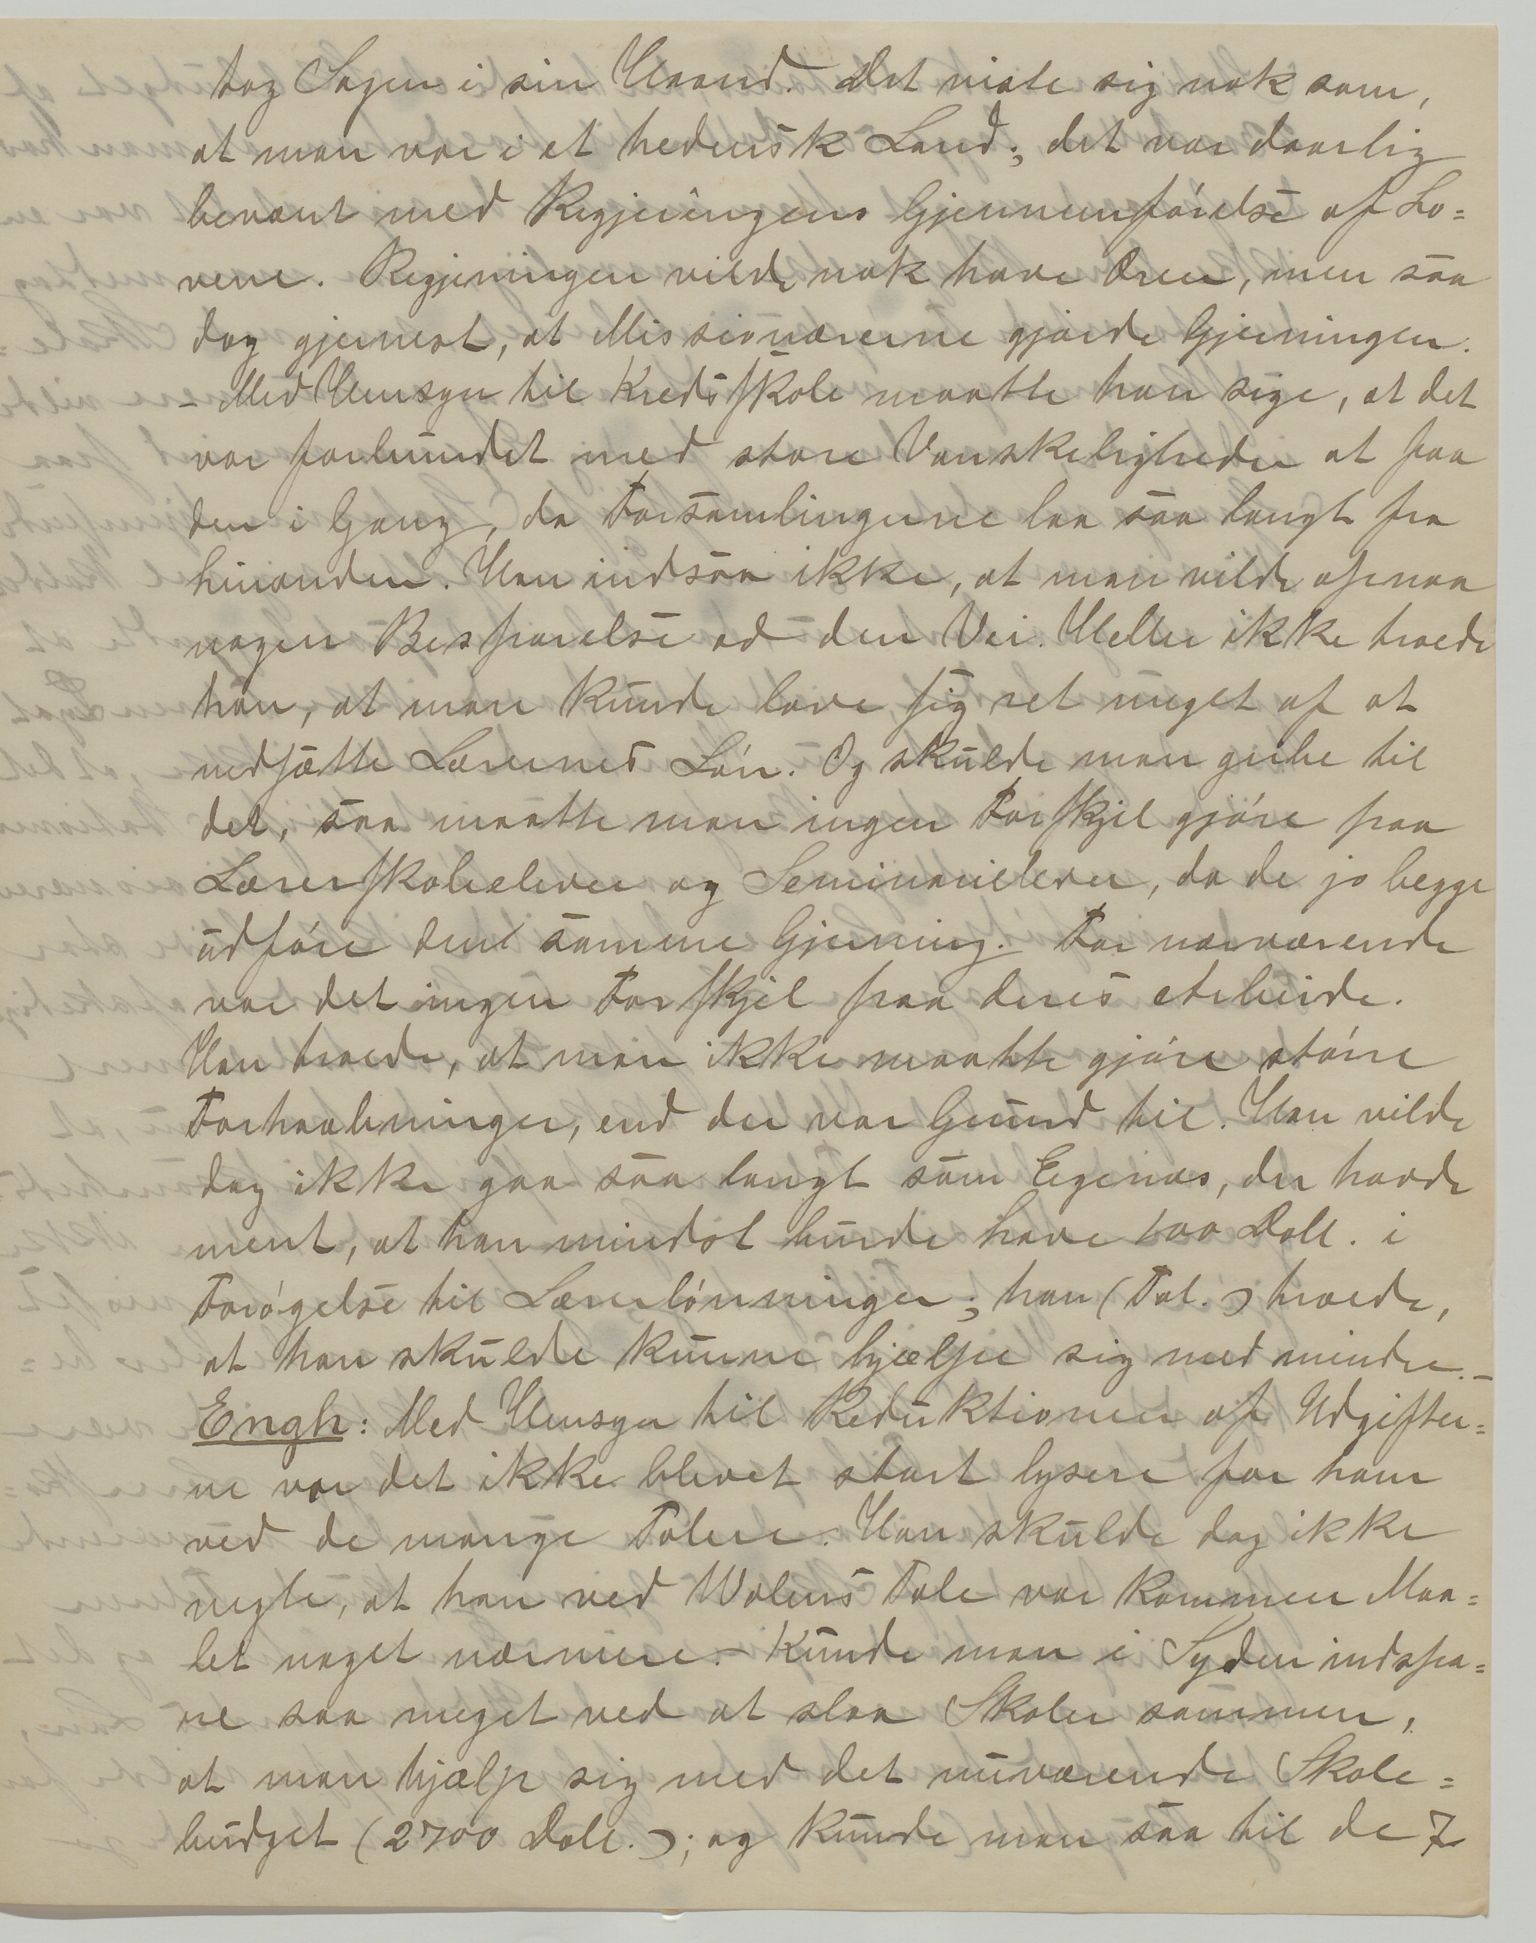 tog Sagen i sin Haand. Det viste sig nok som,
at man var i et hedensk Land; det var daarlig
bevænt med Regjeringens Gjennemførelse af Lo=
vene. Regjeringen vilde nok have Æren, men saa
dog gjernest, at Missionærerne gjorde Gjerningen.
– Med Hensyn til Kredsskole maatte han sige, at det
var forbundet med store Vanskeligheder at faa
den i Gang, da Forsamlingerne laa saa langt fra
hinanden. Han indsaa ikke, at man vilde opnaa
nogen Besparelse ad den Vei. Heller ikke troede
han, at man kunde love sig ret meget af at
nedsætte Lærernes Løn. Og skulde man gribe til
det, saa maatte man ingen Forskjel gjøre paa
Lærerskoleelever og Seminarielever, da de jo begge
udføre den samme Gjerning. For nærværende
var det ingen Forskjel paa deres Arbeide.
Han troede, at man ikke maatte gjøre større
Forhaabninger, end der var Grund til. Han vilde
dog ikke gaa saa langt som Egenæs, der havde
ment, at han mindst burde have 100 Doll. i
Forøgelse til Lærerlønninger; han (Tal.) troede,
at han skulde kunne hjælpe sig med mindre. –
Engh: Med Hensyn til Reduktionen af Udgifter=
ne var det ikke blevet stort lysere for ham
ved de mange Talere. Han skulde dog ikke
negte, at han ved Walens Tale var kommen Maa=
let noget nærmere. – Kunde man i Syden indspa=
re saa meget ved at slaa Skoler sammen,
at man hjælp sig med det nuværende Skole=
budget (2700 Doll.); og kunde man saa til de 7